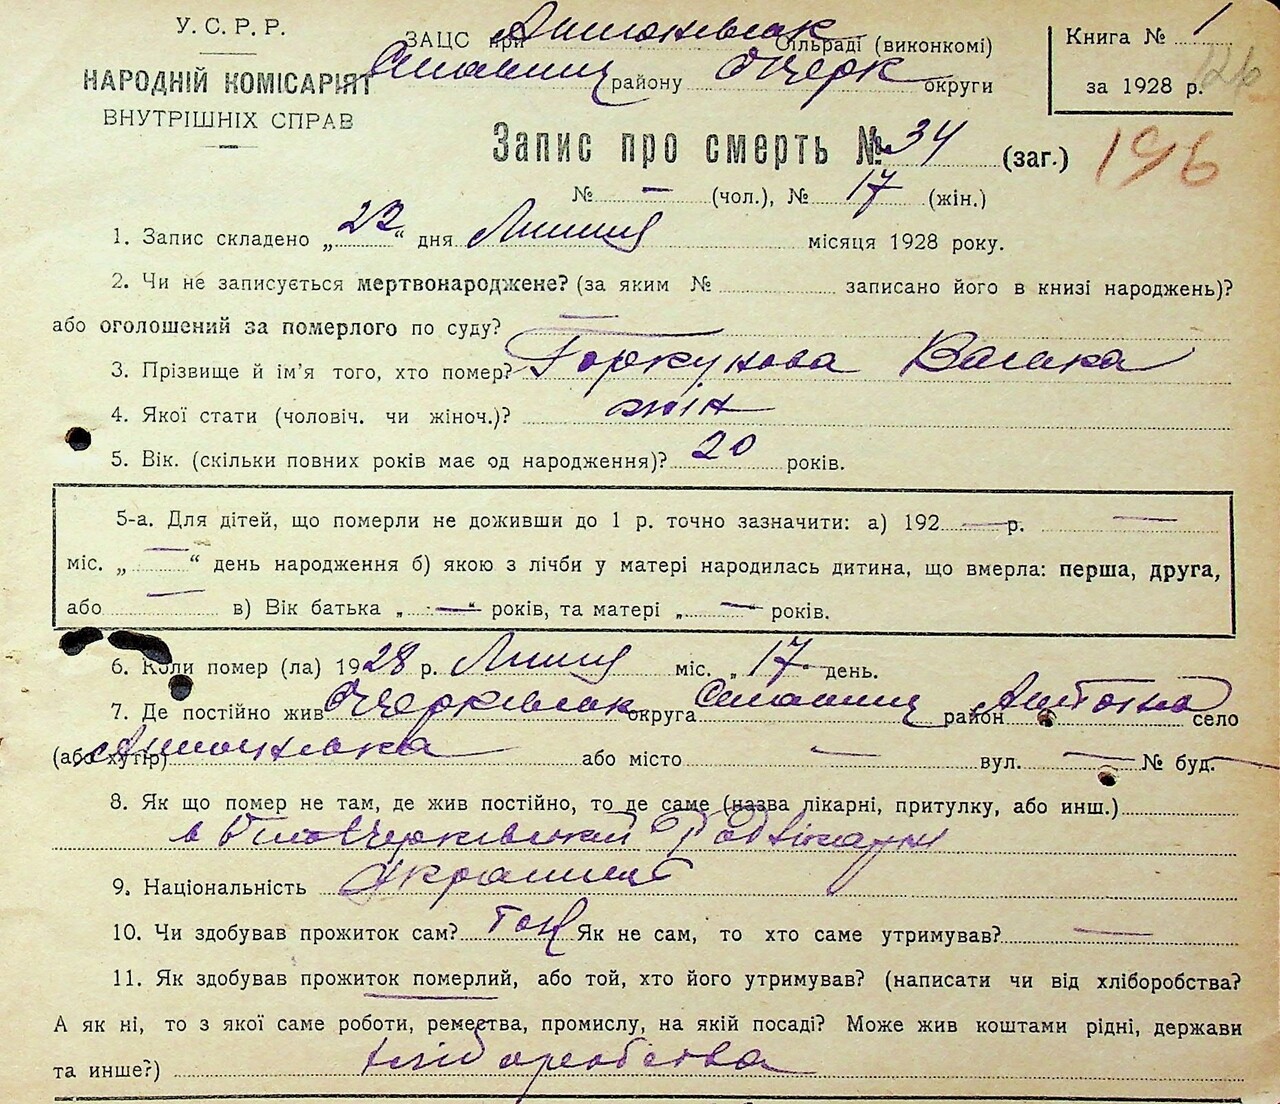 У.С.Р.Р.
НАРОДНІЙ КОМІСАРІЯТ
ВНУТРІШНІХ СПРАВ
ЗАЦС при Сільраді (виконкомі)
району округи
Книга № 1
за 1928 р.
Запис про смерть № 34 (заг.)
196
№ — (чол.), № 17 (жін.)
1. Запис складено „22“ дня Липня місяця 1928 року.
2. Чи не записується мертвонароджене? (за яким № записано його в книзі народжень)?
або оголошений за померлого по суду? —
3. Прізвище й ім'я того, хто помер? Горкунова
4. Якої стати (чоловіч. чи жіноч.)? жін
5. Вік. (скільки повних років має од народження)? 20 років.
5-а. Для дітей, що померли не доживши до 1 р. точно зазначити: а) 192 — р. —
міс. „ — “ день народження б) якою з лічби у матері народилась дитина, що вмерла: перша, друга,
або — в) Вік батька „ — “ років, та матері „ — років.
6. Коли помер (ла) 1928 р. Липня міс. „17 день.
7. Де постійно жив округа район село
(або хутір) Антонівка або місто — вул. — № буд. —
8. Як що помер не там, де жив постійно, то де саме (назва лікарні, притулку, або инш.)
в Білоцерківській
9. Національність
10. Чи здобував прожиток сам? так Як не сам, то хто саме утримував? —
11. Як здобував прожиток померлий, або той, хто його утримував? (написати чи від хліборобства?
А як ні, то з якої саме роботи, ремества, промислу, на якій посаді? Може жив коштами рідні, держави
та инше?) хліборобства